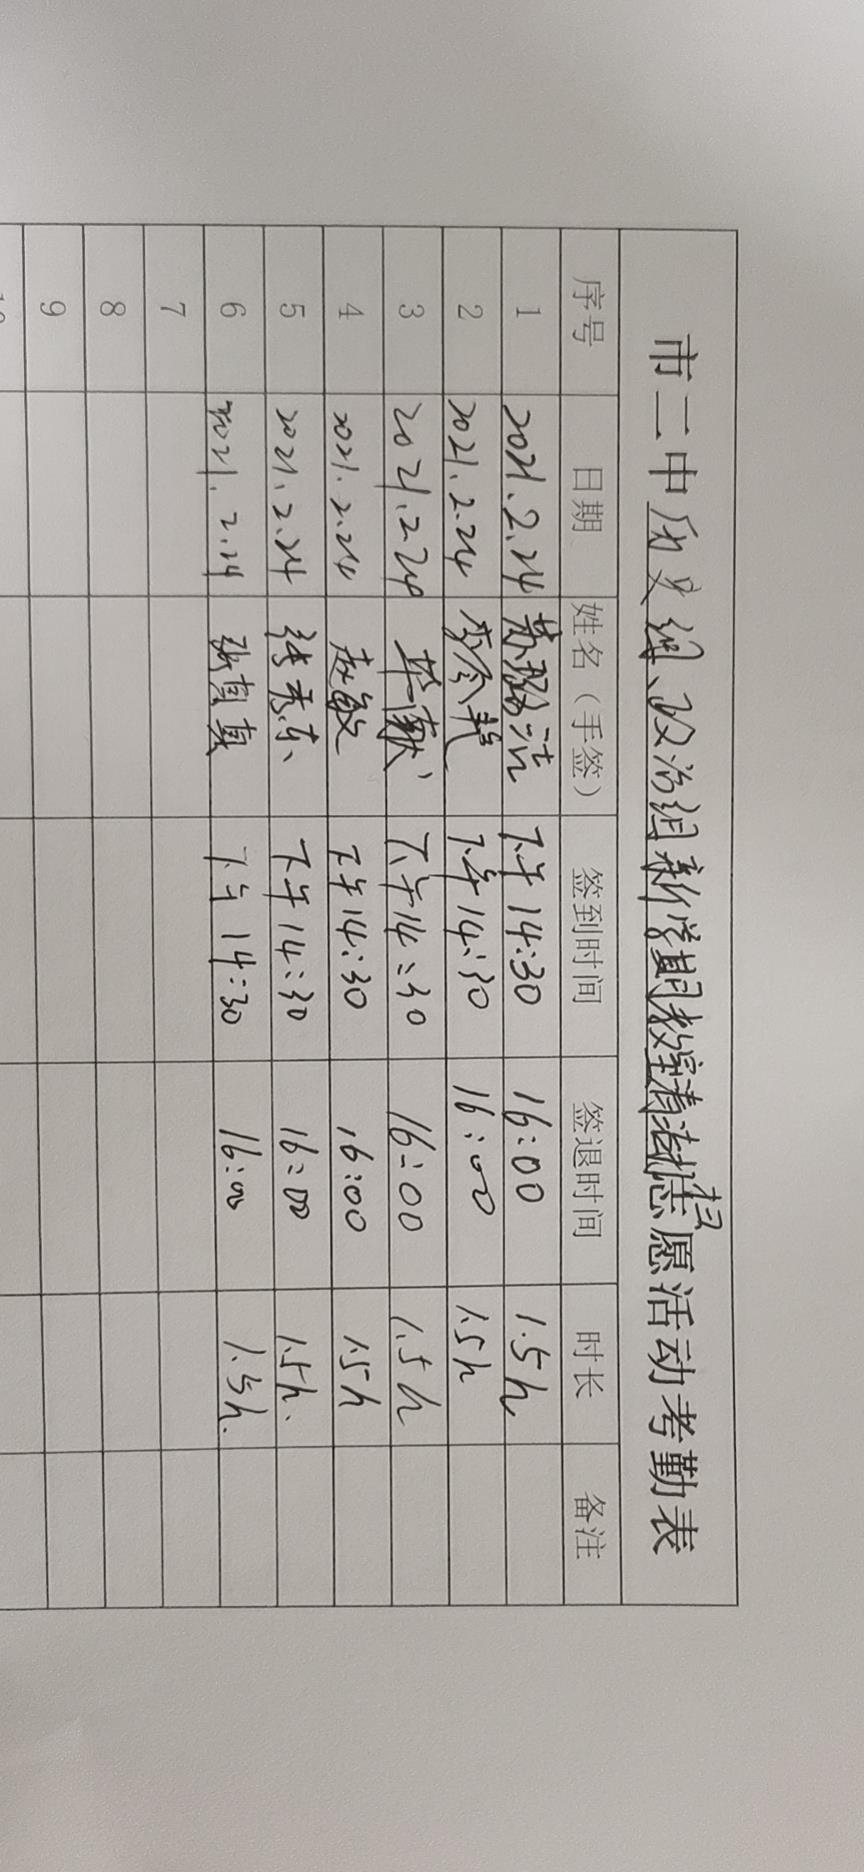 市二中历史组、政治组新学期教室清洁打扫志愿活动考勤表
序号 日期 姓名（手签） 签到时间 签退时间 时长 备注
1 2021.2.24 苏璐洁 下午14:30 16:00 1.5h
2 2021.2.24 下午14:30 16:00 1.5h
3 2021.2.24 下午14:30 16:00 1.5h
4 2021.2.24 赵敏 下午14:30 16:00 1.5h
5 2021.2.24 下午14:30 16:00 1.5h.
6 2021.2.24 张真真 下午14:30 16:00 1.5h.
7
8
9